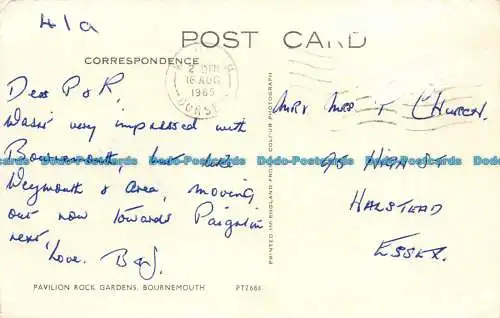 41a
POST CARD
CORRESPONDENCE
2 PM
16 AUG
1965
DORSET
Dear P & R,
Wasn't very impressed with
Bournemouth, but like
Weymouth & area, moving
out now towards Paignton
next,
Love. B & J.
PAVILION ROCK GARDENS, BOURNEMOUTH PT2684
PRINTED IN ENGLAND FROM COLOUR PHOTOGRAPH
Mr & Mrs T CHURCH,
95 HIGH ST
HALSTEAD
ESSEX.
Dodo-Postcards Dodo-Postcards Dodo-Postcards Dodo-Postcards